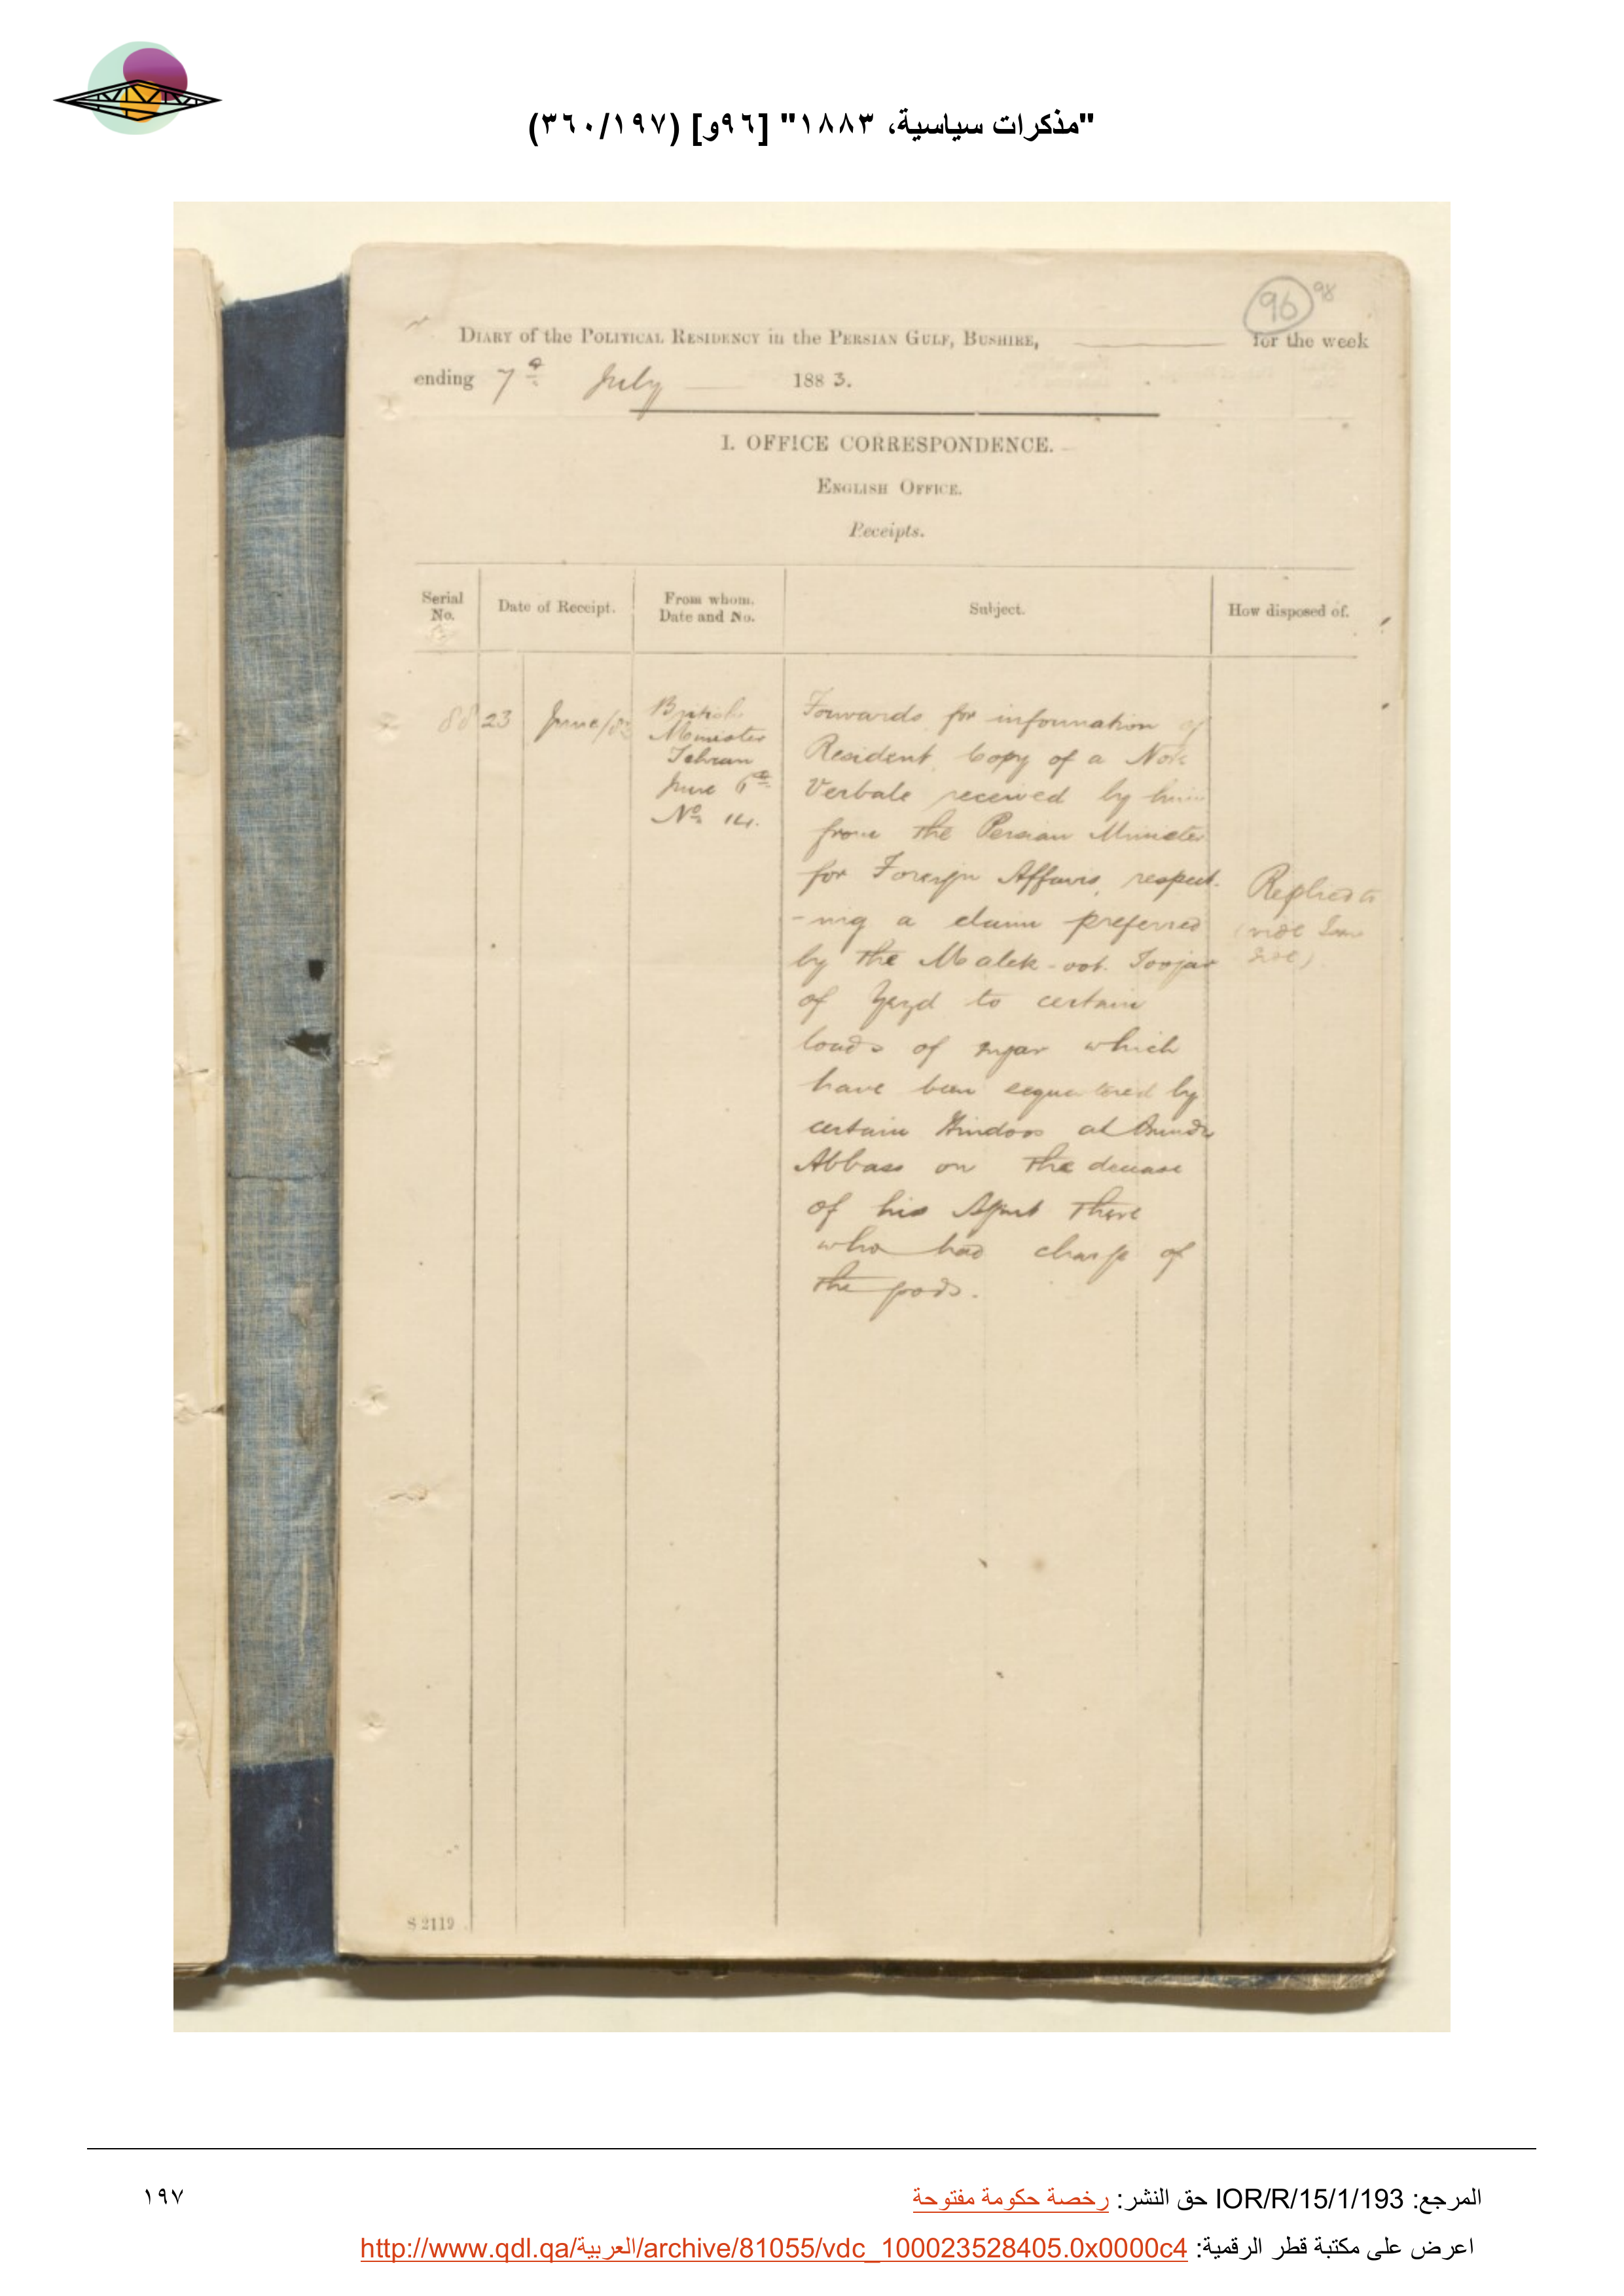 "مذكرات سياسية، ١٨٨٣" [٩٦و] (٣٦٠/١٩٧)
96 98
DIARY of the POLITICAL RESIDENCY in the PERSIAN GULF, BUSHIRE, for the week
ending 7th July 1883.
I. OFFICE CORRESPONDENCE.
ENGLISH OFFICE.
Receipts.
Serial No.
Date of Receipt.
From whom. Date and No.
Subject.
How disposed of.
88 23 June/83
British
Minister
Tehran
June 6th
No 14.
Forwards for information of
Resident Copy of a Note
Verbale received by him
from the Persian Minister
for Foreign Affairs, respect-
-ing a claim preferred
by the Malek-oot-Toojar
of Yezd to certain
loads of sugar which
have been sequestered by
certain Hindoos at Bunder
Abbass on the decease
of his Agent there
who had charge of
the goods.
Replied to
(vide
S 2119
المرجع: IOR/R/15/1/193 حق النشر: رخصة حكومة مفتوحة
١٩٧
اعرض على مكتبة قطر الرقمية: http://www.qdl.qa/العربية/archive/81055/vdc_100023528405.0x0000c4